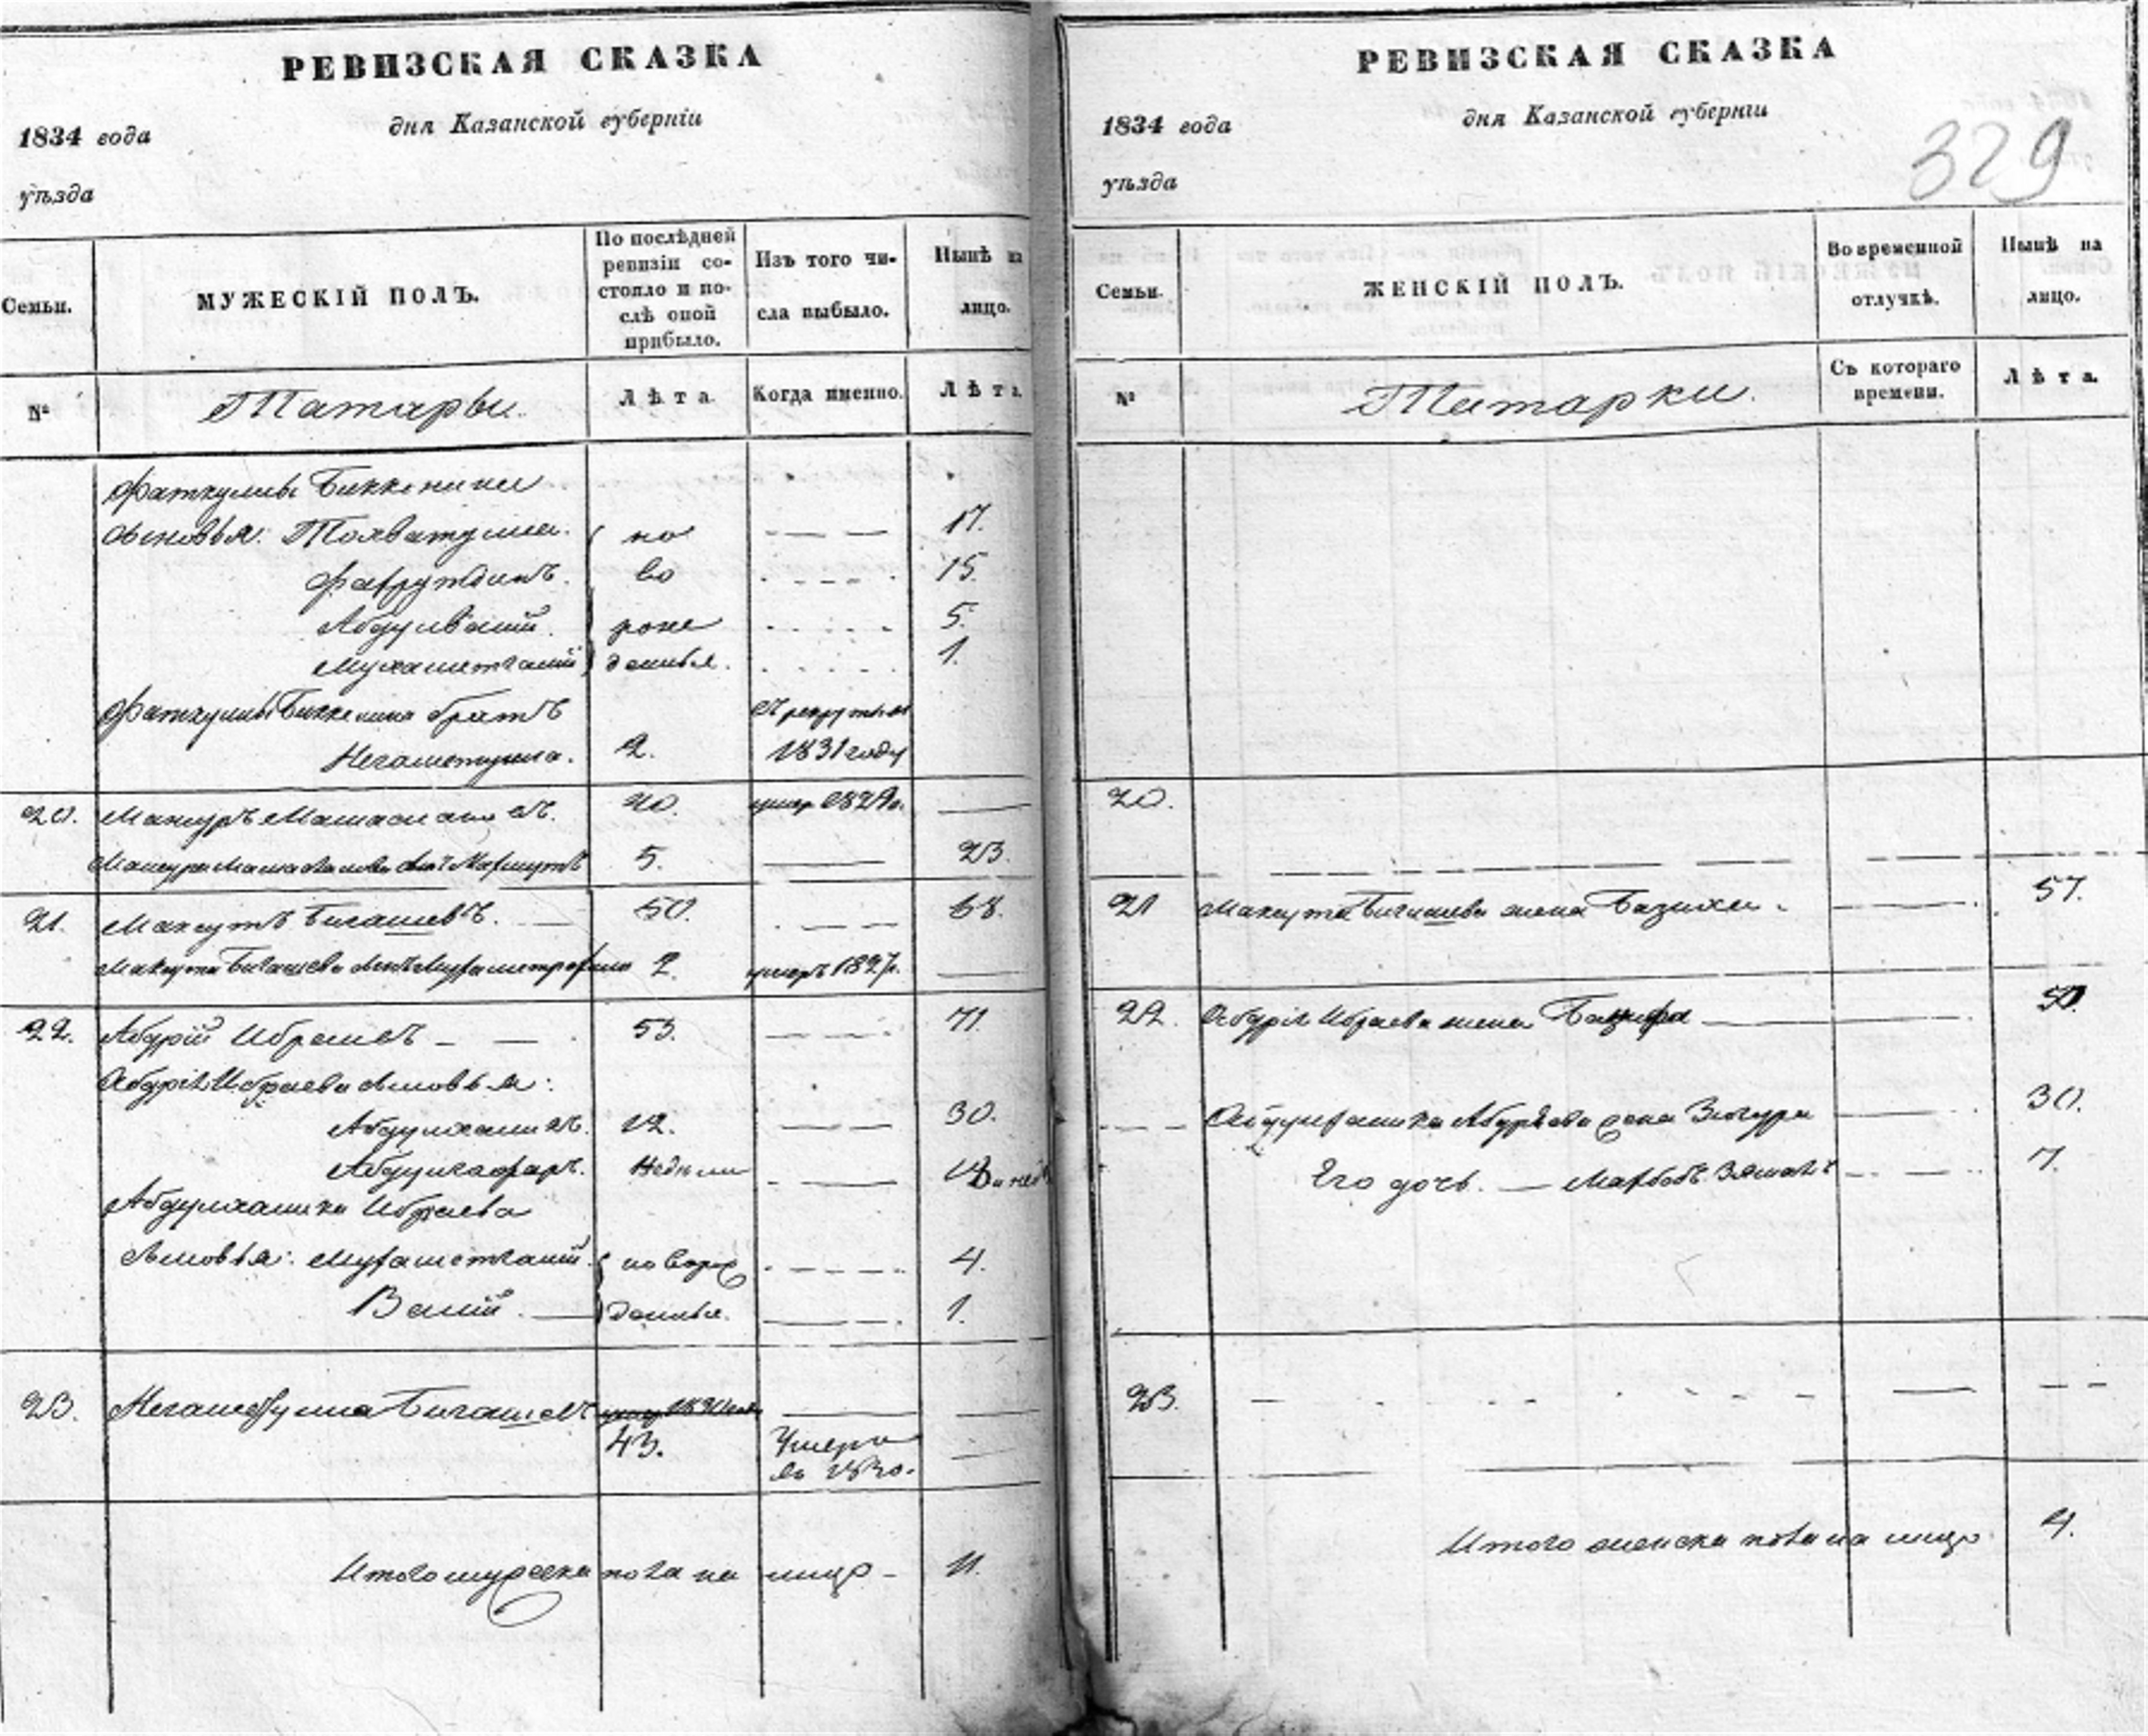 РЕВИЗСКАЯ СКАЗКА
1834 года
дня Казанской губерніи
уѣзда
Семьи.
МУЖЕСКІЙ ПОЛЪ.
По послѣдней ревизіи состояло и послѣ оной прибыло.
Изъ того числа выбыло.
Нынѣ на лицо.
№
Татары.
Лѣта.
Когда именно.
Лѣта.
Фаткуллы Биккенина
сыновья: но — 17.
Фахрутдинъ. во 15.
Абдулвалій. рож 5.
Мухаметгалій денныя. 1.
Фаткуллы Биккенина братъ въ рекруты въ
Негаметулла. 2. 1831 году
20. Мансуръ 20. умеръ 1829 г. —
Мансура сынъ Махмутъ 5. — 23.
21. Максутъ Бигашевъ. 50. — 68.
Максута Бигашева сынъ 2. умеръ 1827 г. —
22. Абдрій Ибраевъ 53. — 71.
Абдрія Ибраева сыновья:
Абдулхаликъ. 12. — 30.
Абдулгафаръ. недѣли — 18
Абдулхалика Ибраева
сыновья: Мухаметгалій новорож 4.
Валій — денныя. — 1.
23. Бигашевъ умеръ 1830 года — —
43. Умеръ
въ 1830. —
Итого мужеска пола на лицо — 11.
РЕВИЗСКАЯ СКАЗКА
1834 года
дня Казанской губерніи
329
уѣзда
Семьи.
ЖЕНСКІЙ ПОЛЪ.
Во временной отлучкѣ.
Нынѣ на лицо.
№
Татарки.
Съ котораго времени.
Лѣта.
20.
21 Максута Бигашева жена — 57.
22. Абдрія Ибраева жена — 50
Абдулхалика Абдрѣева жена — 30.
Его дочь. — 7.
23.
Итого женска пола на лицо 4.